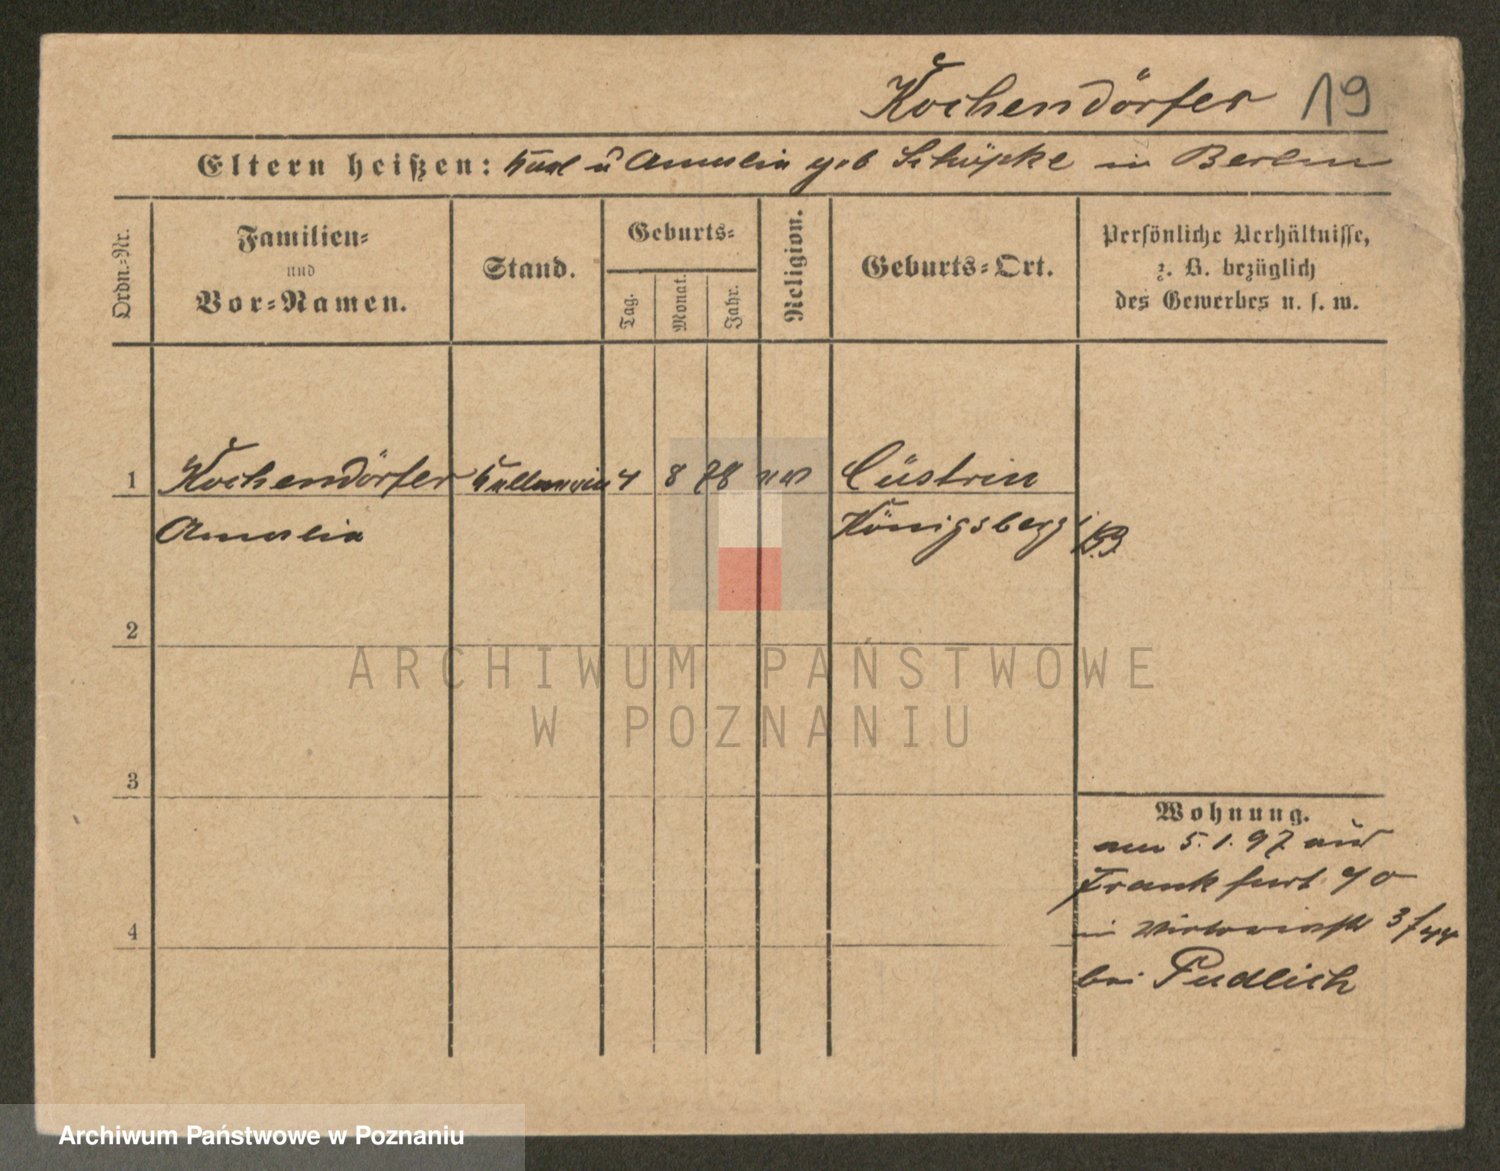 Kochendörfer 19
Eltern heißen: Karl u Amalia geb Schöpke in Berlin
Ordn.-Nr.
Familien-
und
Vor-Namen.
Stand.
Geburts-
Tag.
Monat.
Jahr.
Religion.
Geburts-Ort.
Persönliche Verhältnisse,
z. B. bezüglich
des Gewerbes u. s. w.
1 Kochendörfer Kellnerin 4 8 78 ev Cüstrin
Amalia Königsberg
2
3
4
Wohnung.
am 5.1.97 aus
Frankfurt a/O
in Victoriastr
bei Pudlich
ARCHIWUM PAŃSTWOWE
W POZNANIU
Archiwum Państwowe w Poznaniu